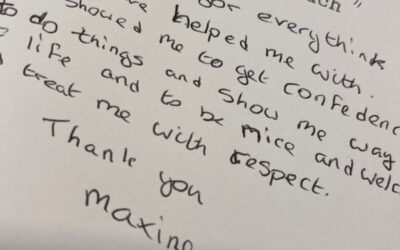 for everythink
helped me with.
showed me to get confedenc
to do things and show me way
life and to be mice and welc
treat me with respect.
Thank you
maxine